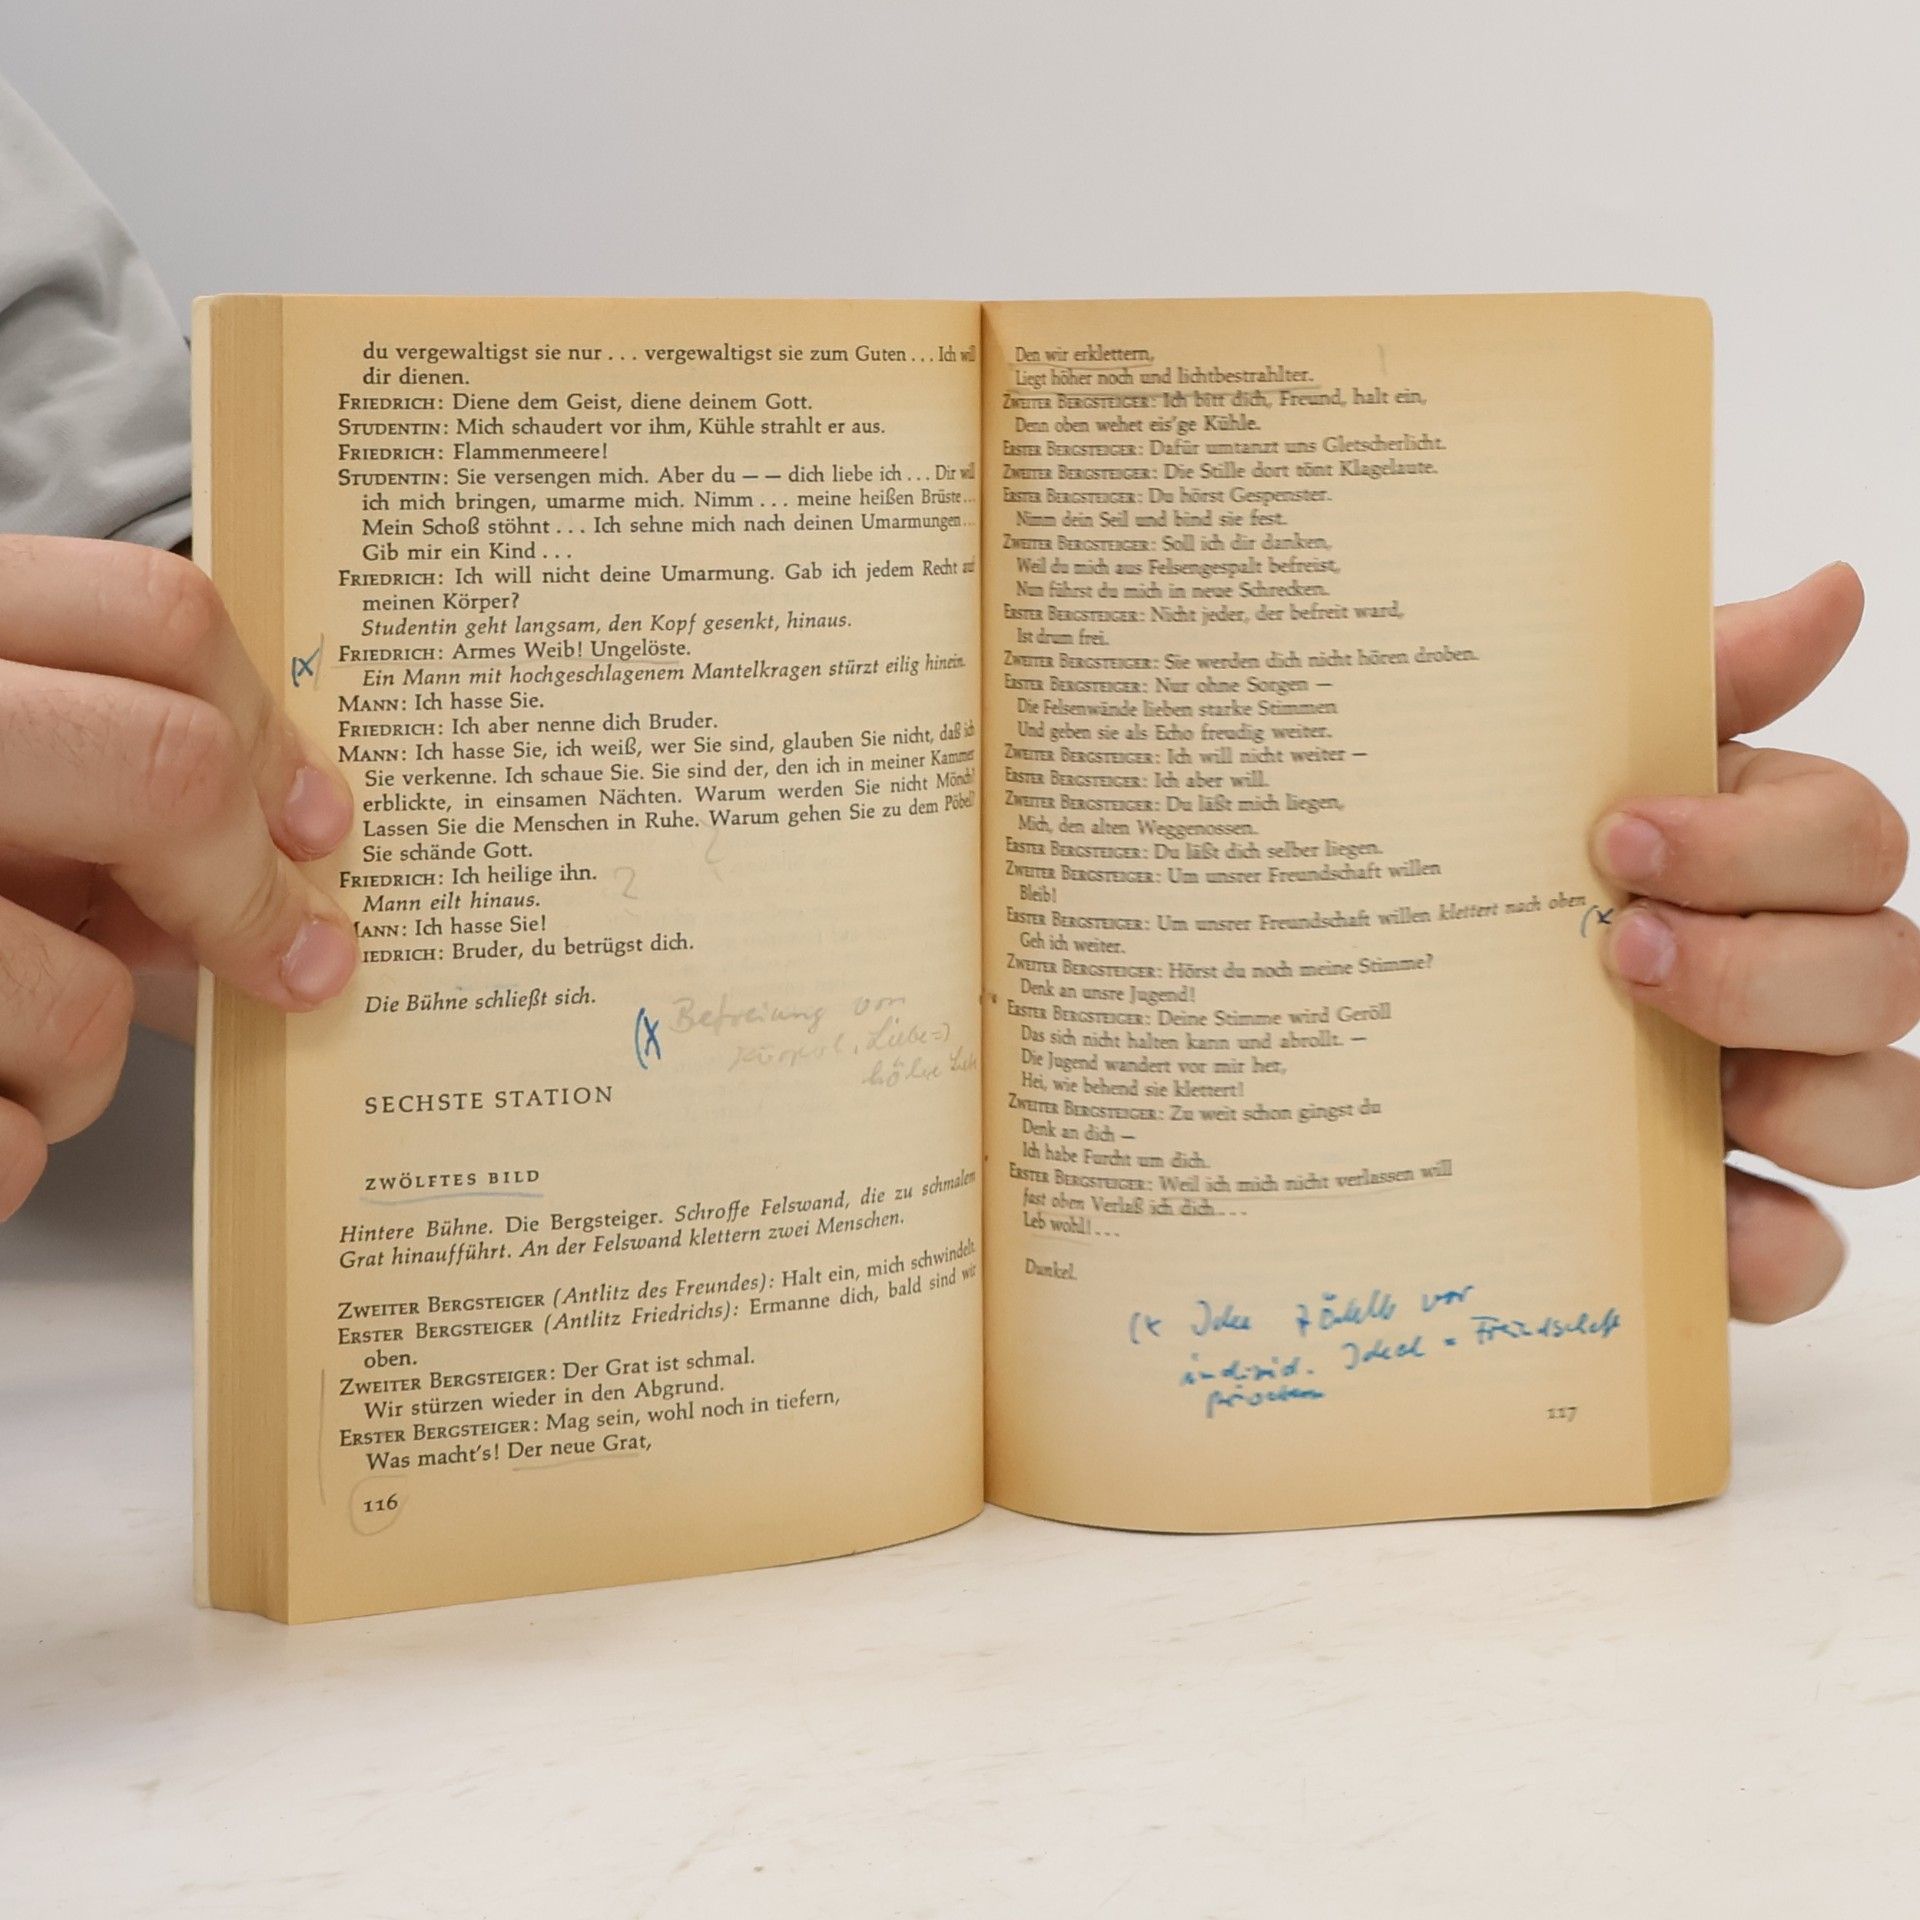 du vergewaltigst sie nur . . . vergewaltigst sie zum Guten . . . Ich will
dir dienen.
FRIEDRICH: Diene dem Geist, diene deinem Gott.
STUDENTIN: Mich schaudert vor ihm, Kühle strahlt er aus.
FRIEDRICH: Flammenmeere!
STUDENTIN: Sie versengen mich. Aber du — — dich liebe ich . . . Dir will
ich mich bringen, umarme mich. Nimm . . . meine heißen Brüste . . .
Mein Schoß stöhnt . . . Ich sehne mich nach deinen Umarmungen . . .
Gib mir ein Kind . . .
FRIEDRICH: Ich will nicht deine Umarmung. Gab ich jedem Recht auf
meinen Körper?
Studentin geht langsam, den Kopf gesenkt, hinaus.
(x FRIEDRICH: Armes Weib! Ungelöste.
Ein Mann mit hochgeschlagenem Mantelkragen stürzt eilig hinein.
MANN: Ich hasse Sie.
FRIEDRICH: Ich aber nenne dich Bruder.
MANN: Ich hasse Sie, ich weiß, wer Sie sind, glauben Sie nicht, daß ich
Sie verkenne. Ich schaue Sie. Sie sind der, den ich in meiner Kammer
erblickte, in einsamen Nächten. Warum werden Sie nicht Mönch?
Lassen Sie die Menschen in Ruhe. Warum gehen Sie zu dem Pöbel?
Sie schände Gott.
FRIEDRICH: Ich heilige ihn.
Mann eilt hinaus.
MANN: Ich hasse Sie!
IEDRICH: Bruder, du betrügst dich.
Die Bühne schließt sich.
(x Befreiung von
Körper, Liebe =>
höhere Liebe
SECHSTE STATION
ZWÖLFTES BILD
Hintere Bühne. Die Bergsteiger. Schroffe Felswand, die zu schmalem
Grat hinaufführt. An der Felswand klettern zwei Menschen.
ZWEITER BERGSTEIGER (Antlitz des Freundes): Halt ein, mich schwindelt.
ERSTER BERGSTEIGER (Antlitz Friedrichs): Ermanne dich, bald sind wir
oben.
ZWEITER BERGSTEIGER: Der Grat ist schmal.
Wir stürzen wieder in den Abgrund.
ERSTER BERGSTEIGER: Mag sein, wohl noch in tiefern,
Was macht's! Der neue Grat,
116
Den wir erklettern,
Liegt höher noch und lichtbestrahlter.
ZWEITER BERGSTEIGER: Ich bitt dich, Freund, halt ein,
Denn oben wehet eis'ge Kühle.
ERSTER BERGSTEIGER: Dafür umtanzt uns Gletscherlicht.
ZWEITER BERGSTEIGER: Die Stille dort tönt Klagelaute.
ERSTER BERGSTEIGER: Du hörst Gespenster.
Nimm dein Seil und bind sie fest.
ZWEITER BERGSTEIGER: Soll ich dir danken,
Weil du mich aus Felsengespalt befreist,
Nun führst du mich in neue Schrecken.
ERSTER BERGSTEIGER: Nicht jeder, der befreit ward,
Ist drum frei.
ZWEITER BERGSTEIGER: Sie werden dich nicht hören droben.
ERSTER BERGSTEIGER: Nur ohne Sorgen —
Die Felsenwände lieben starke Stimmen
Und geben sie als Echo freudig weiter.
ZWEITER BERGSTEIGER: Ich will nicht weiter —
ERSTER BERGSTEIGER: Ich aber will.
ZWEITER BERGSTEIGER: Du läßt mich liegen,
Mich, den alten Weggenossen.
ERSTER BERGSTEIGER: Du läßt dich selber liegen.
ZWEITER BERGSTEIGER: Um unsrer Freundschaft willen
Bleib!
ERSTER BERGSTEIGER: Um unsrer Freundschaft willen klettert nach oben (x
Geh ich weiter.
ZWEITER BERGSTEIGER: Hörst du noch meine Stimme?
Denk an unsre Jugend!
ERSTER BERGSTEIGER: Deine Stimme wird Geröll
Das sich nicht halten kann und abrollt. —
Die Jugend wandert vor mir her,
Hei, wie behend sie klettert!
ZWEITER BERGSTEIGER: Zu weit schon gingst du
Denk an dich —
Ich habe Furcht um dich.
ERSTER BERGSTEIGER: Weil ich mich nicht verlassen will
fast oben Verlaß ich dich . . .
Leb wohl! . . .
Dunkel.
(x Idee vor
individ. Ideal = Freundschaft
117